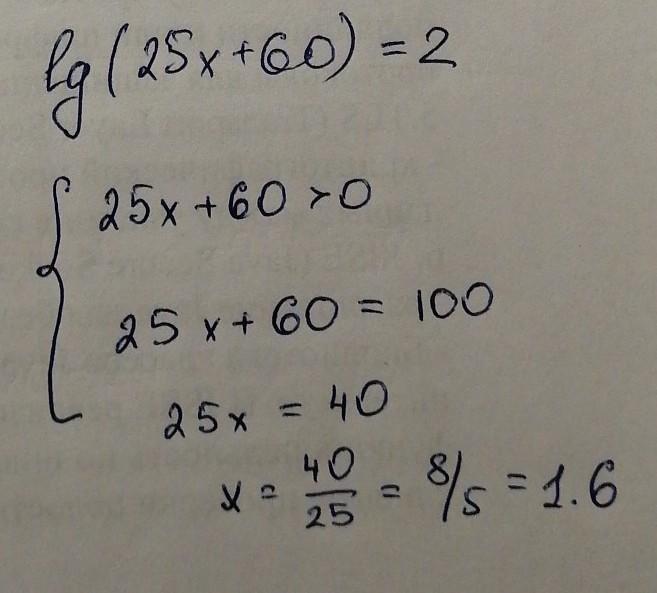 lg(25x+60)=2
25x+60>0
25x+60=100
25x=40
x=40/25=8/5=1.6